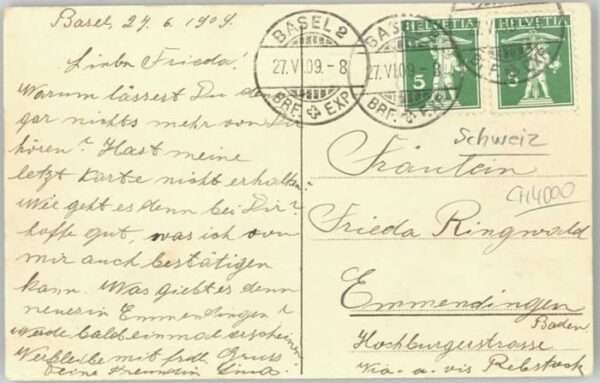 Basel, 27. 6. 1909.
Liebe Frieda!
Warum lässest Du denn
gar nichts mehr von Dir
hören? Hast meine
letzt Karte nicht erhalten?
Wie geht es denn bei Dir?
hoffe gut, was ich von
mir auch bestätigen
kann. Was giebt es denn
neues in Emmendingen?
werde bald einmal erscheinen
Verbleibe mit frdl. Gruss
Deine Freundin Lina.
BASEL 2
27.VI.09.-8
BRF. EXP.
BASEL
27.VI.09.-8
BRF. EXP.
EXP
HELVETIA
5
HELVETIA
5
Schweiz
Fräulein
CH4000
Frieda Ringwald
Emmendingen
Baden
Hochburgerstrasse
Via-a-vis Rebstock